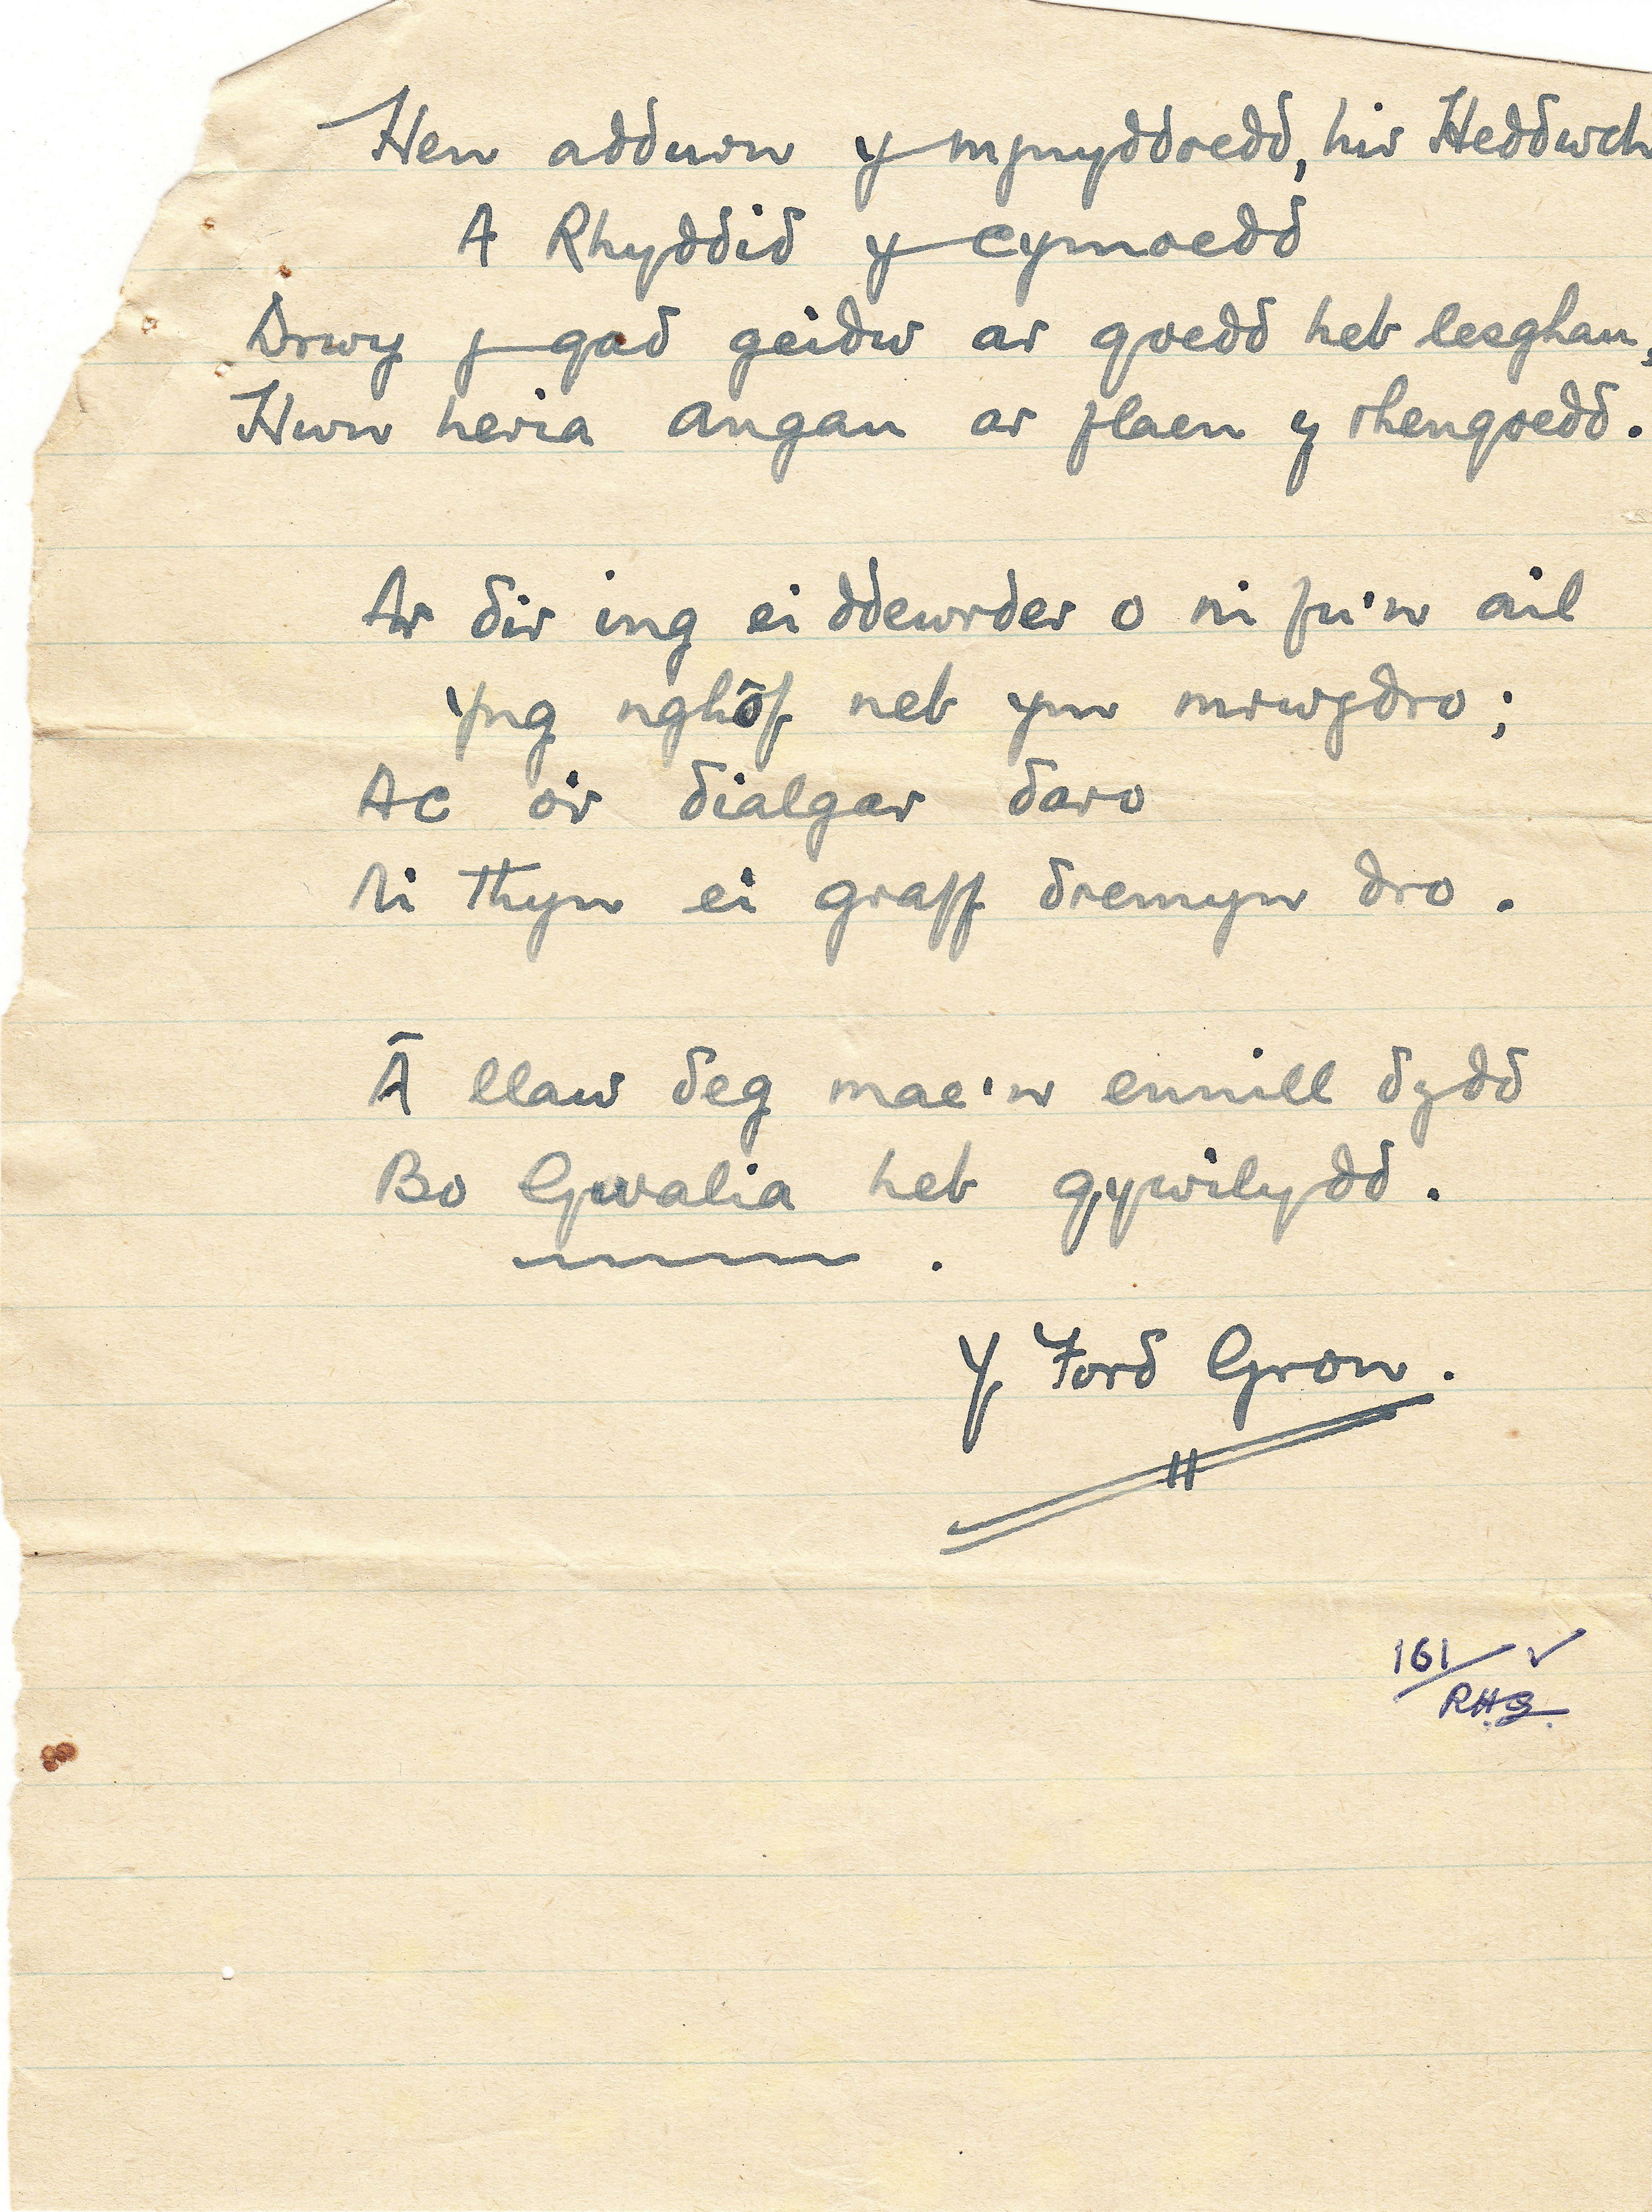 Hen addurn y mynyddoedd, hir Heddwch
A Rhyddid y cymoedd
Drwy y gad geidw ar goedd heb lesghau,
Hwn heria angau ar flaen y rhengoedd.
Ar dir ing ei ddewrder o ni fu'n ail
Yng nghôf neb yn mrwydro;
Ac o'r dialgar daro
Ni thyn ei graff dremyn dro.
Â llaw deg mae'n ennill dydd
Bo Gwalia heb gywilydd.
Y Ford Gron.
161/ ✓
R.H.